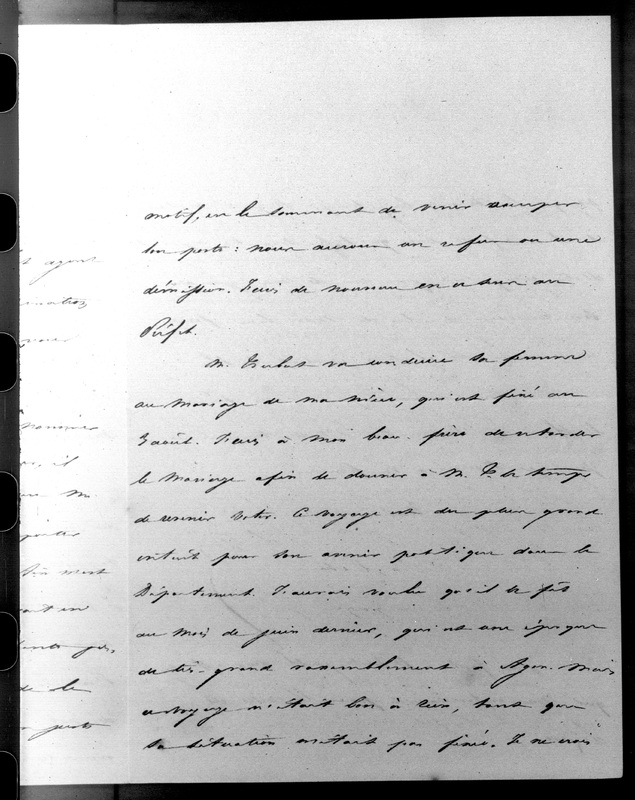 motif, en le sommant de venir occuper
son poste : nous aurons un refus ou une
démission. J'écris de nouveau en ce sens au
Préfet.
M. va conduire sa femme
au Mariage de ma nièce, qui est fixé au
3 août. J'écris à mon beau-frère de retarder
le Mariage afin de donner à M. le temps
de venir voter. Ce voyage est du plus grand
intérêt pour son avenir politique dans le
Département. J'aurais voulu qu'il le fît
au mois de juin dernier, qui est une époque
de très-grand rassemblement à Agen. Mais
ce voyage n'était bon à rien, tant que
sa situation n'était pas fixée. Je ne crois
t agent
pour
il
M
de la
poste